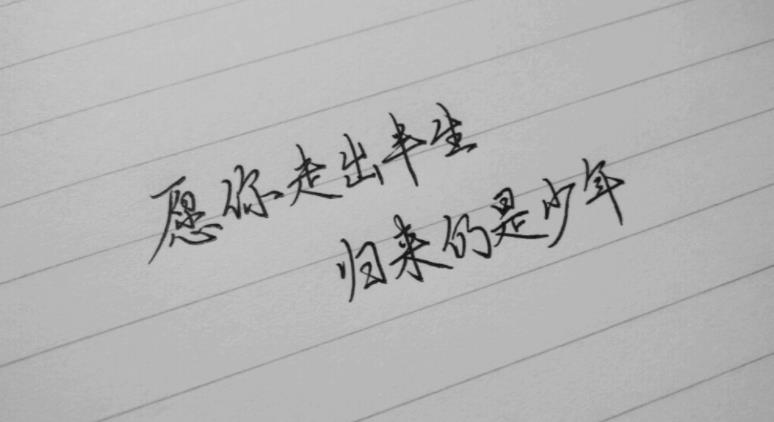 愿你走出半生
归来的是少年